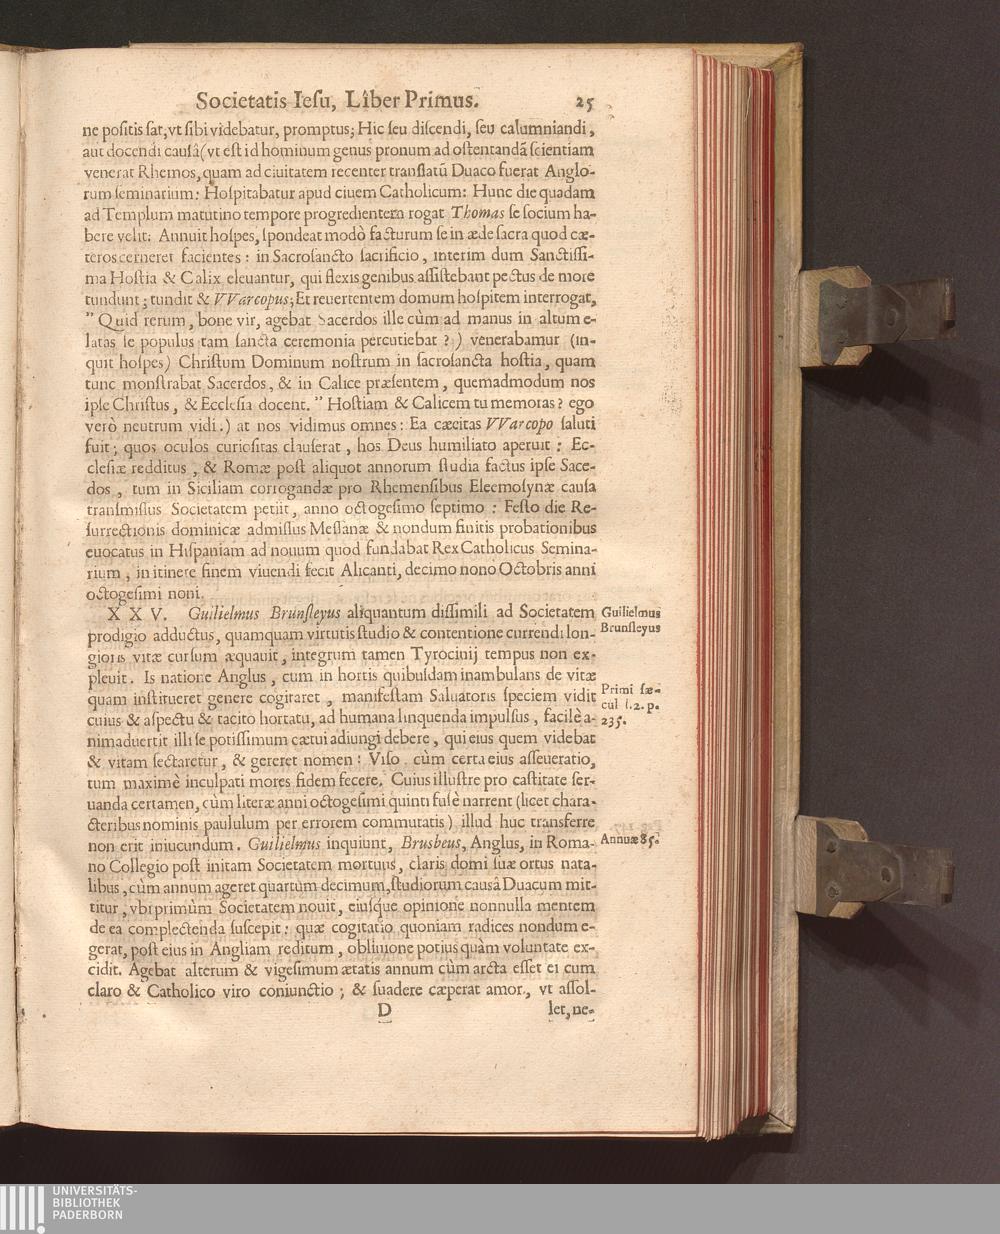 Societatis Iesu, Liber Primus. 25
ne positis sat, vt sibi videbatur, promptus; Hic seu discendi, seu calumniandi,
aut docendi causâ (vt est id hominum genus pronum ad ostentandā scientiam
venerat Rhemos, quam ad ciuitatem recenter translatū Duaco fuerat Anglo-
rum seminarium: Hospitabatur apud ciuem Catholicum: Hunc die quadam
ad Templum matutino tempore progredientem rogat Thomas se socium ha-
bere velit: Annuit hospes, spondeat modò facturum se in æde sacra quod cæ-
teros cerneret facientes: in Sacrosancto sacrificio, interim dum Sanctissi-
ma Hostia & Calix eleuantur, qui flexis genibus assistebant pectus de more
tundunt; tundit & VVarcopus; Et reuertentem domum hospitem interrogat,
" Quid rerum, bone vir, agebat Sacerdos ille cùm ad manus in altum e-
latas se populus tam sancta ceremonia percutiebat?) venerabamur (in-
quit hospes) Christum Dominum nostrum in sacrosancta hostia, quam
tunc monstrabat Sacerdos, & in Calice præsentem, quemadmodum nos
ipse Christus, & Ecclesia docent. " Hostiam & Calicem tu memoras? ego
verò neutrum vidi.) at nos vidimus omnes: Ea cæcitas VVarcopo saluti
fuit; quos oculos curiositas clauserat, hos Deus humiliato aperuit: Ec-
clesiæ redditus, & Romæ post aliquot annorum studia factus ipse Sace-
dos, tum in Siciliam corrogandæ pro Rhemensibus Eleemosynæ causa
transmissus Societatem petiit, anno octogesimo septimo: Festo die Re-
surrectionis dominicæ admissus Messanæ & nondum finitis probationibus
euocatus in Hispaniam ad nouum quod fundabat Rex Catholicus Semina-
rium, in itinere finem viuendi fecit Alicanti, decimo nono Octobris anni
octogesimi noni.
XXV. Guilielmus Brunsleyus aliquantum dissimili ad Societatem
Guilielmus
Brunsleyus
prodigio adductus, quamquam virtutis studio & contentione currendi lon-
gioris vitæ cursum æquauit, integrum tamen Tyrocinij tempus non ex-
pleuit. Is natione Anglus, cum in hortis quibusdam inambulans de vitæ
quam institueret genere cogitaret, manifestam Saluatoris speciem vidit
Primi sæ-
cul l. 2. p.
235.
cuius & aspectu & tacito hortatu, ad humana linquenda impulsus, facilè a-
nimaduertit illi se potissimum cætui adiungi debere, qui eius quem videbat
& vitam sectaretur, & gereret nomen: Viso cùm certa eius asseueratio,
tum maximè inculpati mores fidem fecere. Cuius illustre pro castitate ser-
uanda certamen, cùm literæ anni octogesimi quinti fusè narrent (licet chara-
cteribus nominis paululum per errorem commutatis) illud huc transferre
non erit iniucundum. Guilielmus inquiunt, Brusbeus, Anglus, in Roma-
Annuæ 85.
no Collegio post initam Societatem mortuus, claris domi suæ ortus nata-
libus, cùm annum ageret quartum decimum, studiorum causâ Duacum mit-
titur, vbi primùm Societatem nouit, eiusque opinione nonnulla mentem
de ea complectenda suscepit: quæ cogitatio quoniam radices nondum e-
gerat, post eius in Angliam reditum, obliuione potius quàm voluntate ex-
cidit. Agebat alterum & vigesimum ætatis annum cùm arcta esset ei cum
claro & Catholico viro coniunctio; & suadere cæperat amor, vt assol-
D let, ne-
UNIVERSITÄTS-
BIBLIOTHEK
PADERBORN